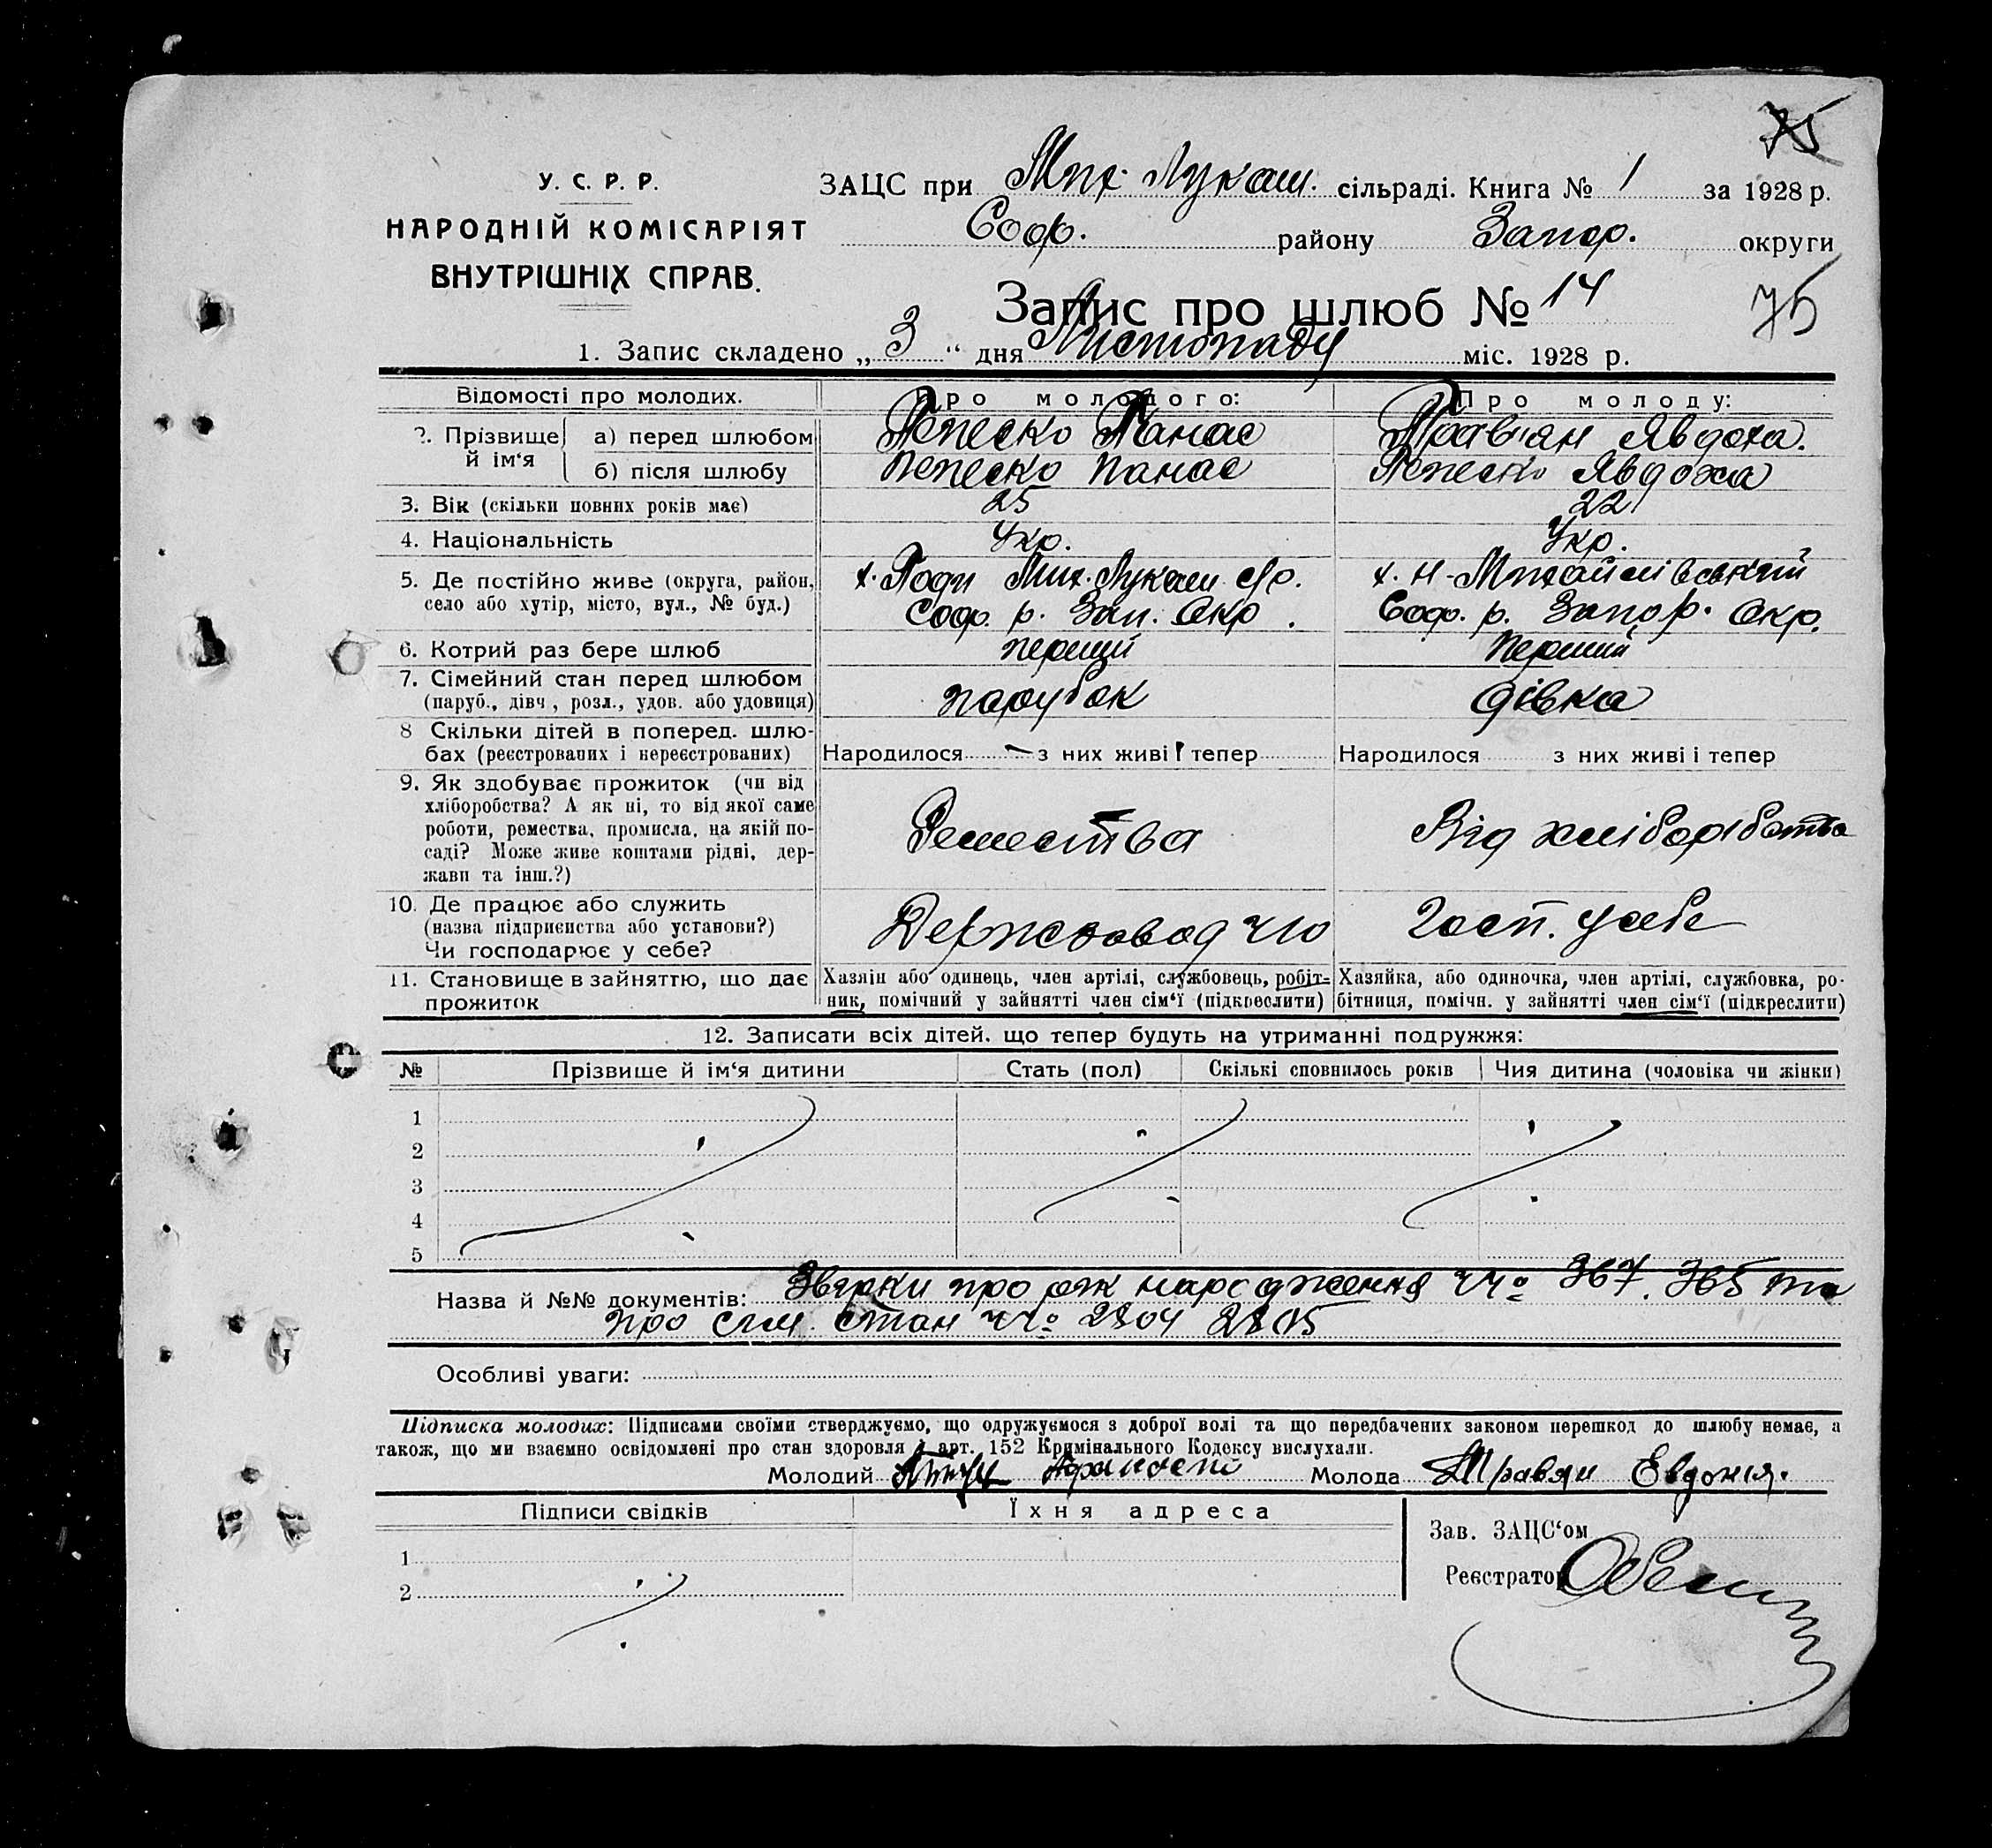 75
У. С. Р. Р.
НАРОДНІЙ КОМІСАРІЯТ
ВНУТРІШНІХ СПРАВ.
ЗАЦС при Мих. Лукаш. сільраді. Книга № 1 за 1928 р.
Соф. району Запор. округи
Запис про шлюб № 14
75
1. Запис складено „ 3 “ дня Листопаду міс. 1928 р.
Відомості про молодих.
Про молодого:
Про молоду:
2. Прізвище й ім‘я
а) перед шлюбом
Панас
Явдоха.
б) після шлюбу
Панас
Явдоха
3. Вік (скільки повних років має)
25
22
4. Національність
Укр.
Укр.
5. Де постійно живе (округа, район,
село або хутір, місто, вул., № буд.)
х. Мих. Лукаш с/р.
Соф. р. Зап. Окр.
х. Н-Михайлівський
Соф. р. Запор. Окр.
6. Котрий раз бере шлюб
перший
Перший
7. Сімейний стан перед шлюбом
(паруб., дівч., розл., удов. або удовиця)
парубок
дівка
8 Скільки дітей в поперед. шлю-
бах (реєстрованих і нереєстрованих)
Народилося - з них живі і тепер
Народилося з них живі і тепер
9. Як здобуває прожиток (чи від
хліборобства? А як ні, то від якої саме
роботи, ремества, промисла, на якій по-
саді? Може живе коштами рідні, дер-
жави та інш.?)
Ремества
Від хліборобства
10. Де працює або служить
(назва підприємства або установи?)
Чи господарює у себе?
Держзавод
Госп. у себе
11. Становище в зайняттю, що дає
прожиток
Хазяїн або одинець, член артілі, службовець, робіт-
ник, помічний у зайнятті член сім‘ї (підкреслити)
Хазяйка, або одиночка, член артілі, службовка, ро-
бітниця, помічн. у зайнятті член сім‘ї (підкреслити)
12. Записати всіх дітей, що тепер будуть на утриманні подружжя:
№ Прізвище й ім‘я дитини Стать (пол) Скількі сповнилось років Чия дитина (чоловіка чи жінки)
1
2
3
4
5
Назва й №№ документів: про народження № 367. 365 та
про сім. стан № 2804 2805
Особливі уваги:
Підписка молодих: Підписами своїми стверджуємо, що одружуємося з доброї волі та що передбачених законом перешкод до шлюбу немає, а
також, що ми взаємно освідомлені про стан здоровля й арт. 152 Кримінального Кодексу вислухали.
Молодий Молода Травян Евдокия.
Підписи свідків
Їхня адреса
1
2
Зав. ЗАЦС‘ом
Реєстратор